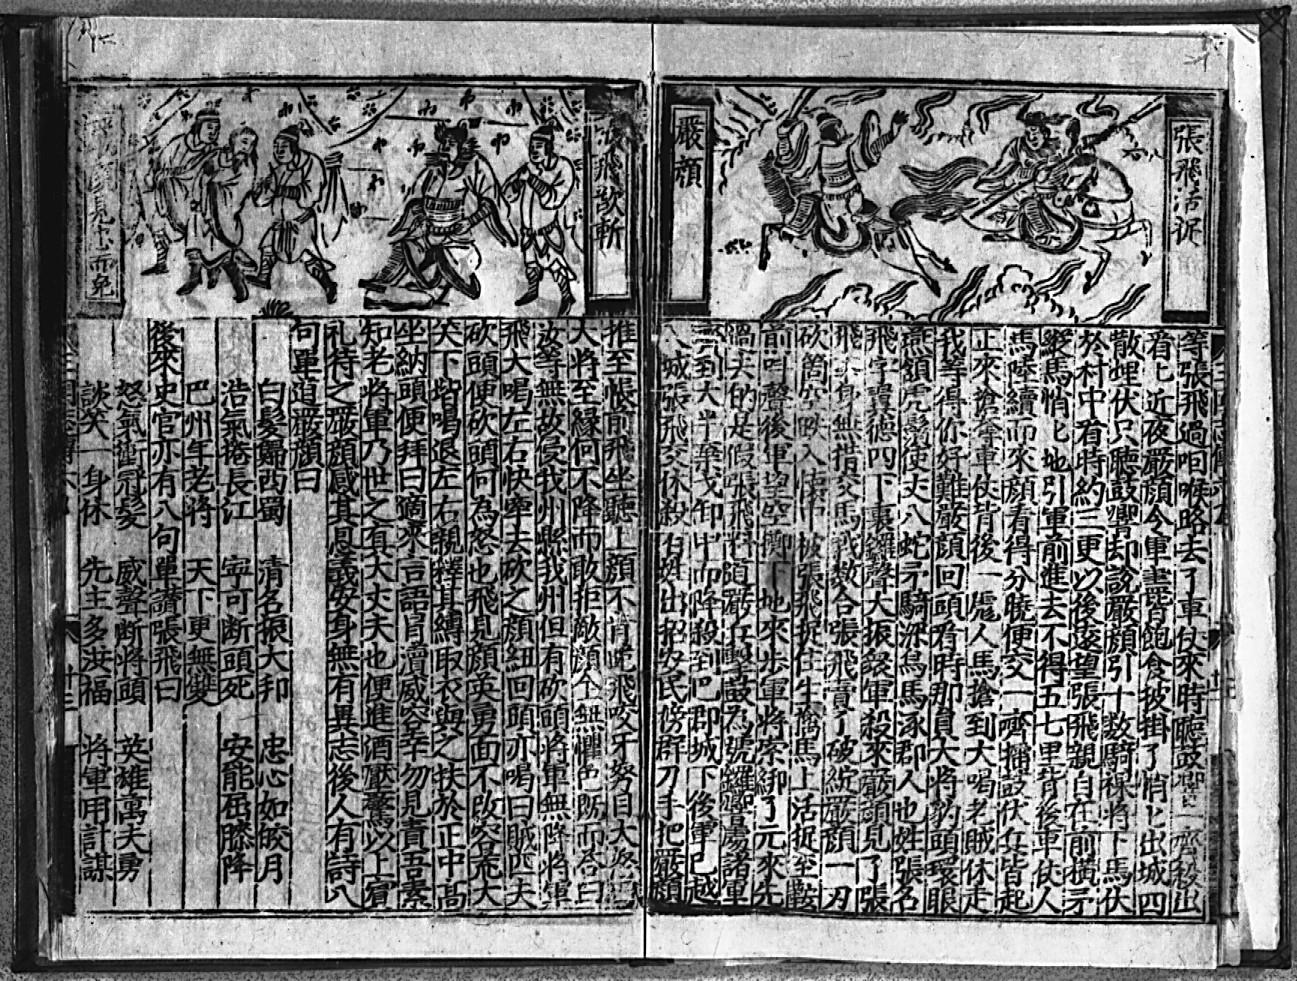 張飛活捉
嚴顏
等張飛過咽喉路去了車仗來時聽鼓響一齊殺出
看七近夜嚴顏令軍盡皆飽食披掛了悄匕出城四
散埋伏只聽鼓響却說嚴顏引十數騎裨將下馬伏
於村中看時約三更以後遠望張飛親自在前橫矛
縱馬悄匕地引軍前進去不得五七里背後車仗人
馬陸續而來顏看得分曉便交一齊擂鼓伏兵皆起
正來搶奪車仗背後一彪人馬搶到大喝老賊休走
我等得你好難嚴顏回頭看時那員大將豹頭環眼
燕頷虎鬚使丈八蛇矛騎深烏馬涿郡人也姓張名
飛字翼德四下裏鑼聲大振衆軍殺來嚴顏見了張
飛身無措交馬戰數合張飛賣了破綻嚴顏一刀
砍箇空跌入懷中被張飛捉住生擒馬上活捉至鞍
前叫聲後軍望空擲下地來步軍將索綁了元來先
過去的是假張飛料道嚴在擊鼓爲號鑼響爲諸軍
到大半棄戈卸甲而降殺到巴郡城下後軍已越
入城張飛交休殺百姓出招安民傍群刀手把嚴顏
張飛欲斬
見忠而免
推至帳前飛坐聽上顏不肯跪飛咬牙努目大怒
大將至緣何不降而敢拒敵顏全無懼色叱而答曰
汝等無故侵我州縣我州但有砍頭將軍無降將軍
飛大喝左右快牽去砍之顏紐回頭亦喝曰賊匹夫
砍頭便砍頭何為怒也飛見顏英勇面不改容飛大
笑下階喝退左右親釋其縛取衣與之扶於正中高
坐納頭便拜曰適來言語冒瀆威容幸勿見責吾素
知老將軍乃世之有大丈夫也便進酒壓驚以上賓
礼待之嚴顏感其恩義安身無有異志後人有詩八
句單道嚴顏曰
白髮歸西蜀　清名振大邦　忠心如皎月
浩氣捲長江　寧可断頭死　安能屈膝降
巴州年老將　天下更無雙
後來史官亦有八句單讚張飛曰
怒氣衝冠髮　威聲断將頭　英雄萬夫勇
談笑一身休　先主多洪福　將軍用計謀